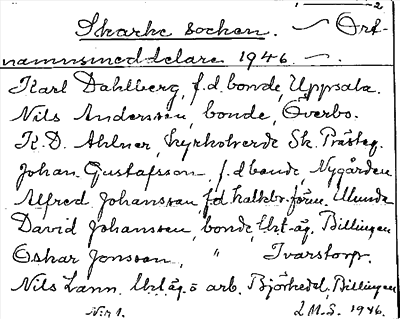 2
Skarke socken. ~ Ort-
namnsmeddelare 1946. ~.
Karl Dahlberg, f.d. bonde, Uppsala.
Nils Andersson, bonde, Överbo.
K.D. Ahlner, kyrkoherde Sk. Prästeg.
Johan Gustafsson, f.d bonde Nygården
Alfred Johansson f.d kalkbr.förm. Ulunda
David Johansson, bonde, Billingen
Oskar Jonsson, " Ivarstorp.
Nils Lann. arb. Billingen
N:r 1. L.M.S. 1946.